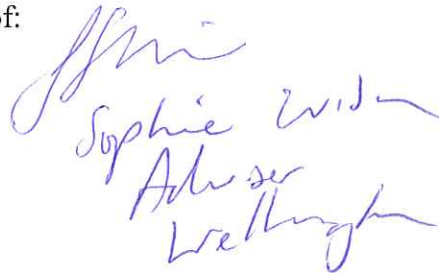 of:
Sophie
Adviser
Wellington